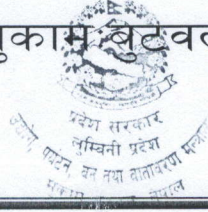 मुकाम बुटवल
प्रदेश सरकार
लुम्बिनी प्रदेश
उद्योग, पर्यटन, वन तथा वातावरण मन्त्रालय
नेपाल